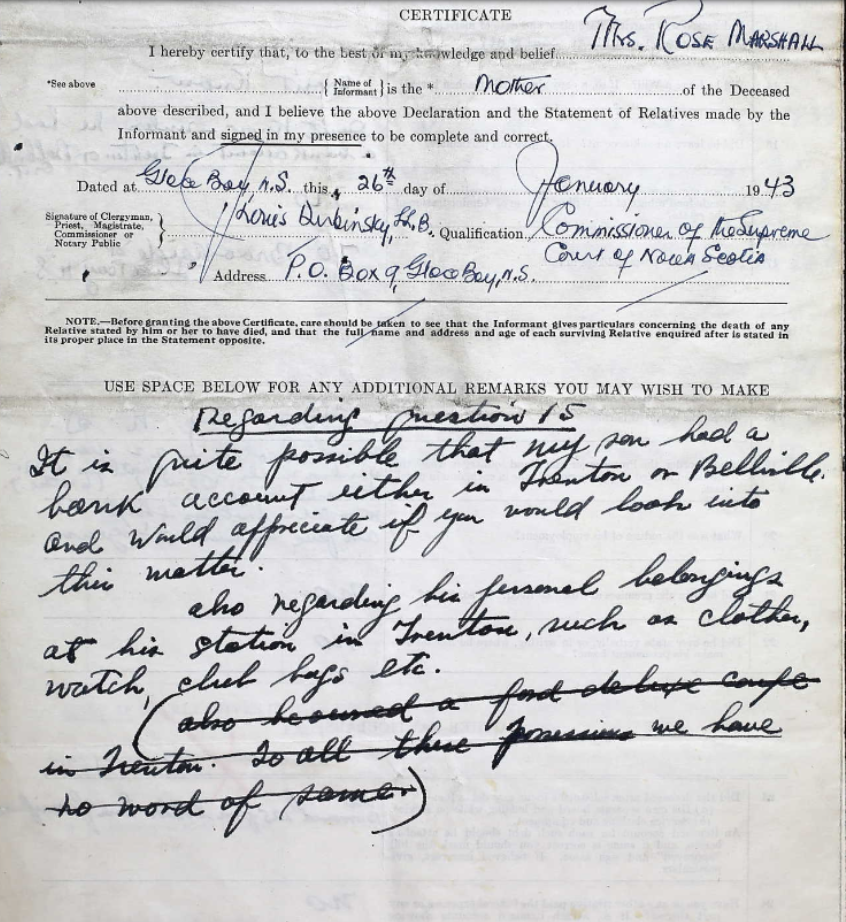 CERTIFICATE
Mrs. Rose Marshall
I hereby certify that, to the best of my knowledge and belief
*See above { Name of Informant } is the * Mother of the Deceased
above described, and I believe the above Declaration and the Statement of Relatives made by the
Informant and signed in my presence to be complete and correct.
Dated at Glace Bay, N.S. this 26th day of January 1943
Signature of Clergyman, Priest, Magistrate, Commissioner or Notary Public } Louis Dubinsky, LL.B. Qualification Commissioner of the Supreme
Court of Nova Scotia
Address P.O. Box 9, Glace Bay, N.S.
NOTE.—Before granting the above Certificate, care should be taken to see that the Informant gives particulars concerning the death of any
Relative stated by him or her to have died, and that the full name and address and age of each surviving Relative enquired after is stated in
its proper place in the Statement opposite.
USE SPACE BELOW FOR ANY ADDITIONAL REMARKS YOU MAY WISH TO MAKE
Regarding question 15
It is quite possible that my son had a
bank account either in Trenton or Bellville.
and would appreciate if you would look into
this matter.
also regarding his personal belongings
at his station in Trenton, such as clothes,
watch, club bags etc.
(also he owned a ford de luxe coupe
in Trenton. To all these possessions we have
no word of same)